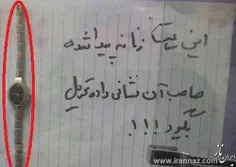 این ساعت زنانه پیدا شده
صاحب آن نشانی داده تحویل
بگیرد !!!
www.irannaz.com
ایران ناز